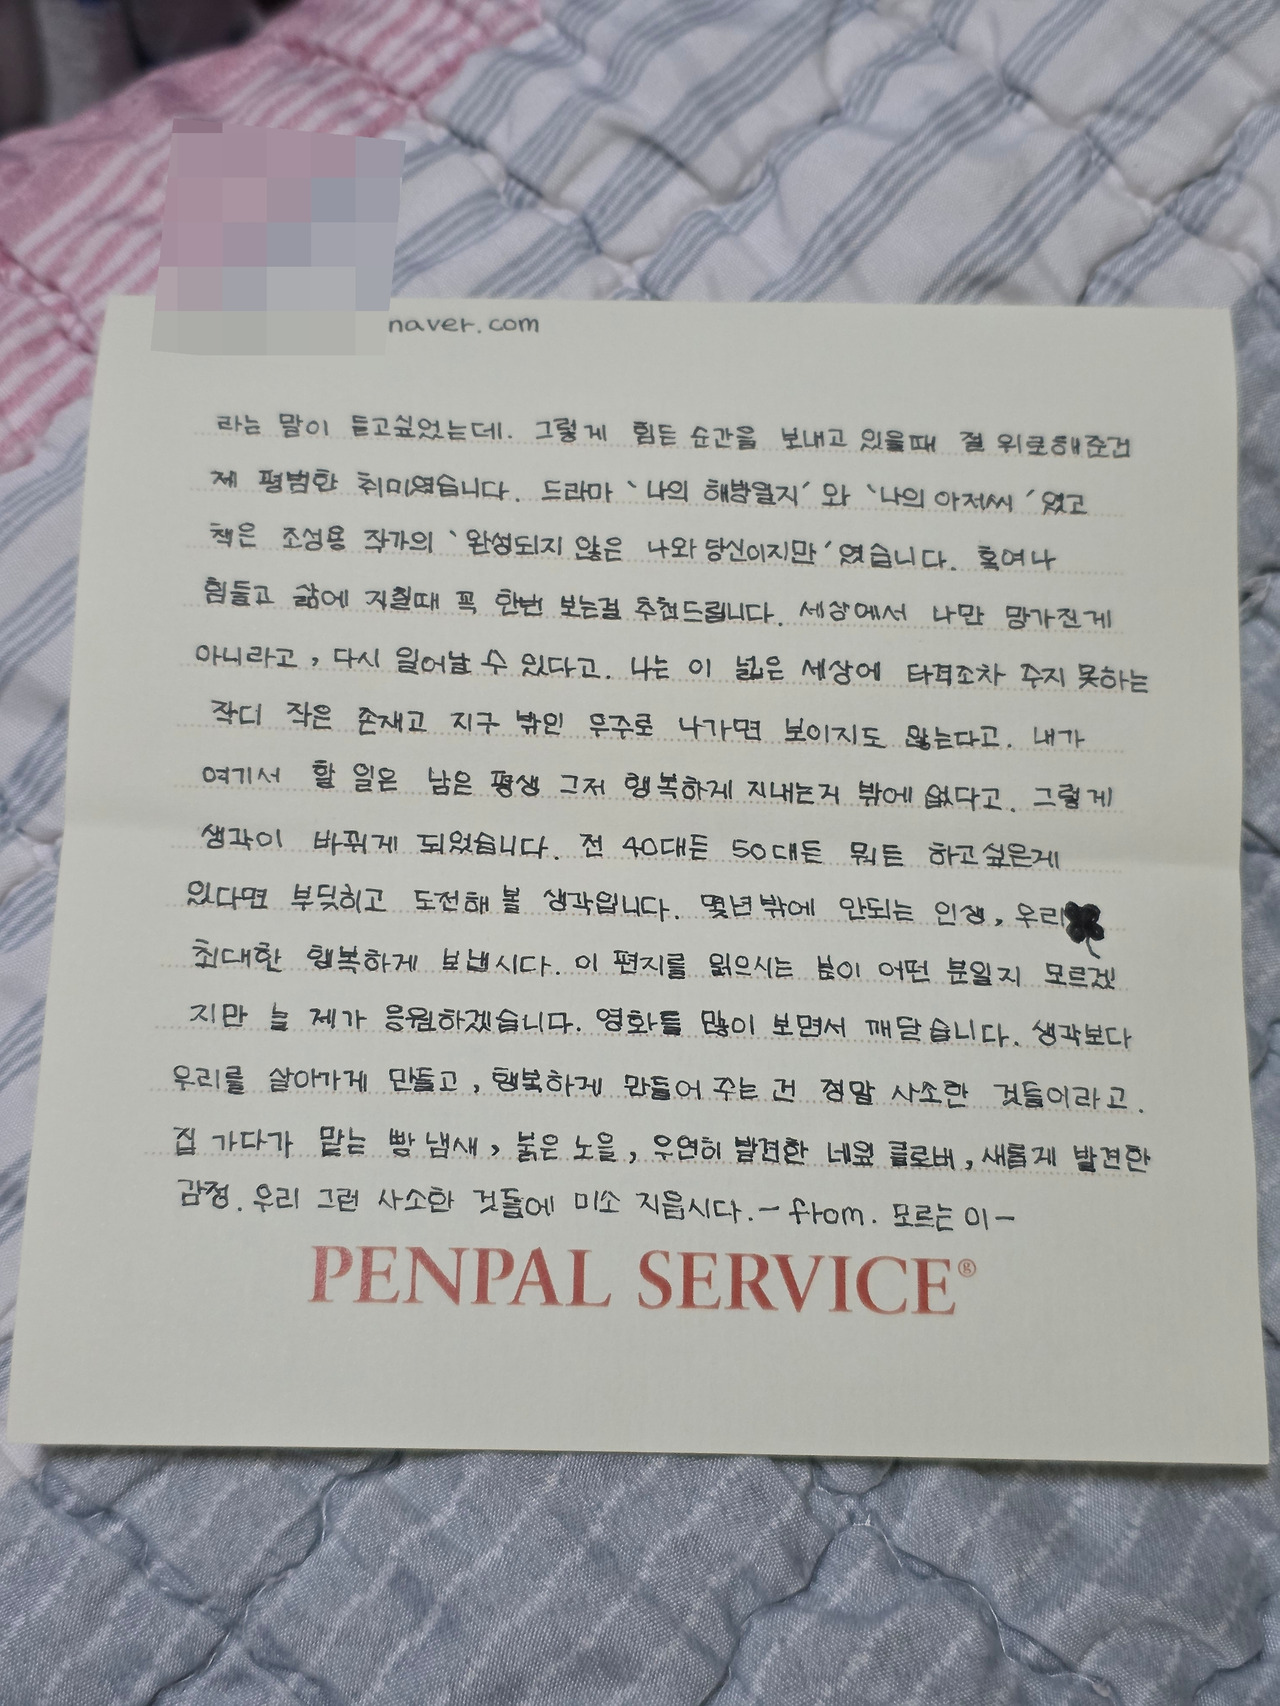 naver.com
라는 말이 듣고싶었는데. 그렇게 힘든 순간을 보내고 있을때 절 위로해준건
제 평범한 취미였습니다. 드라마 '나의 해방일지' 와 '나의 아저씨' 였고
책은 조성용 작가의 '완성되지 않은 나와 당신이지만' 였습니다. 혹여나
힘들고 삶에 지칠때 꼭 한번 보는걸 추천드립니다. 세상에서 나만 망가진게
아니라고, 다시 일어날 수 있다고. 나는 이 넓은 세상에 타격조차 주지 못하는
작디 작은 존재고 지구 밖인 우주로 나가면 보이지도 않는다고. 내가
여기서 할 일은 남은 평생 그저 행복하게 지내는거 밖에 없다고. 그렇게
생각이 바뀌게 되었습니다. 전 40대든 50대든 뭐든 하고싶은게
있다면 부딪히고 도전해 볼 생각입니다. 몇년 밖에 안되는 인생, 우리
최대한 행복하게 보냅시다. 이 편지를 읽으시는 분이 어떤 분일지 모르겠
지만 늘 제가 응원하겠습니다. 영화를 많이 보면서 깨닫습니다. 생각보다
우리를 살아가게 만들고, 행복하게 만들어 주는 건 정말 사소한 것들이라고.
집 가다가 맡는 빵 냄새, 붉은 노을, 우연히 발견한 네잎 클로버, 새롭게 발견한
감정. 우리 그런 사소한 것들에 미소 지읍시다. - from. 모르는 이 -
PENPAL SERVICE®